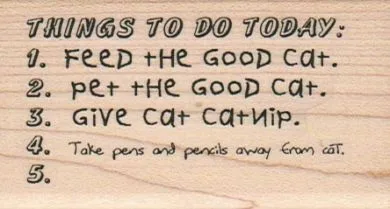 THINGS TO DO TODAY:
1. FEED tHE GOOD Cat.
2. Pet tHE GOOD Cat.
3. GIVE Cat CatNIP.
4. Take pens and pencils away from caT.
5.